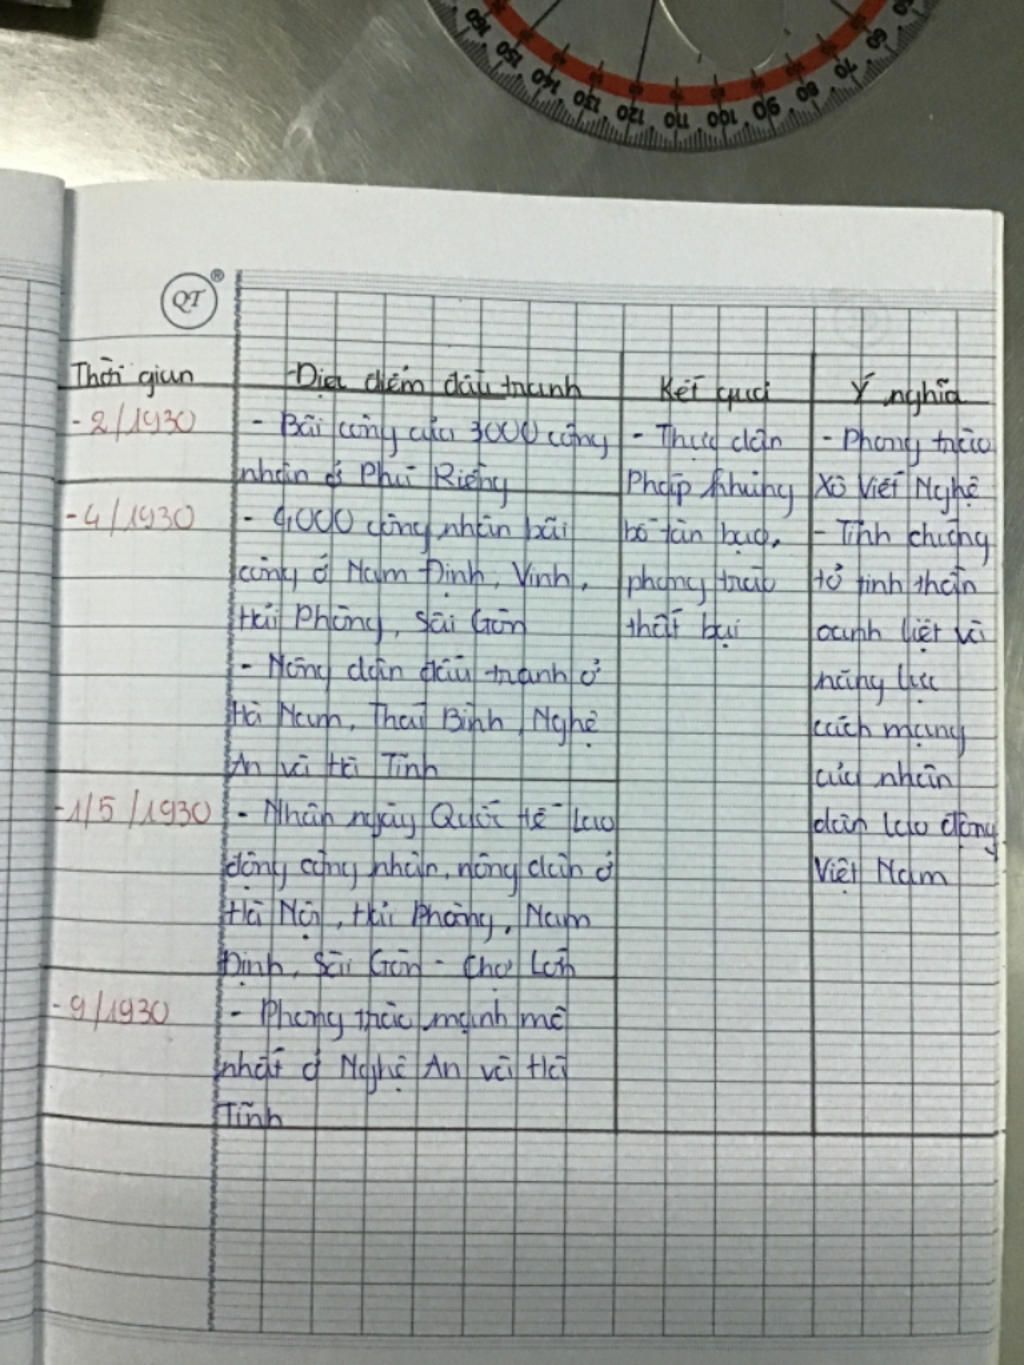 160 150 140 130 120 110 100 90 80 70 60
QT ®
Thời gian Địa điểm đấu tranh Kết quả Ý nghĩa
- 2/1930 - Bãi công của 3000 công - Thực dân - Phong trào
nhân ở Phú Riềng Pháp khủng Xô Viết Nghệ
- 4/1930 - 4,000 công nhân bãi bố tàn bạo, - Tĩnh chứng
công ở Nam Định, Vinh, phong trào tỏ tinh thần
Hải Phòng, Sài Gòn thất bại oanh liệt và
- Nông dân đấu tranh ở năng lực
Hà Nam, Thái Bình, Nghệ cách mạng
An và Hà Tĩnh của nhân
- 1/5/1930 - Nhân ngày Quốc tế Lao dân lao động
động công nhân, nông dân ở Việt Nam
Hà Nội, Hải Phòng, Nam
Định, Sài Gòn - Chợ Lớn
- 9/1930 - Phong trào mạnh mẽ
nhất ở Nghệ An và Hà
Tĩnh